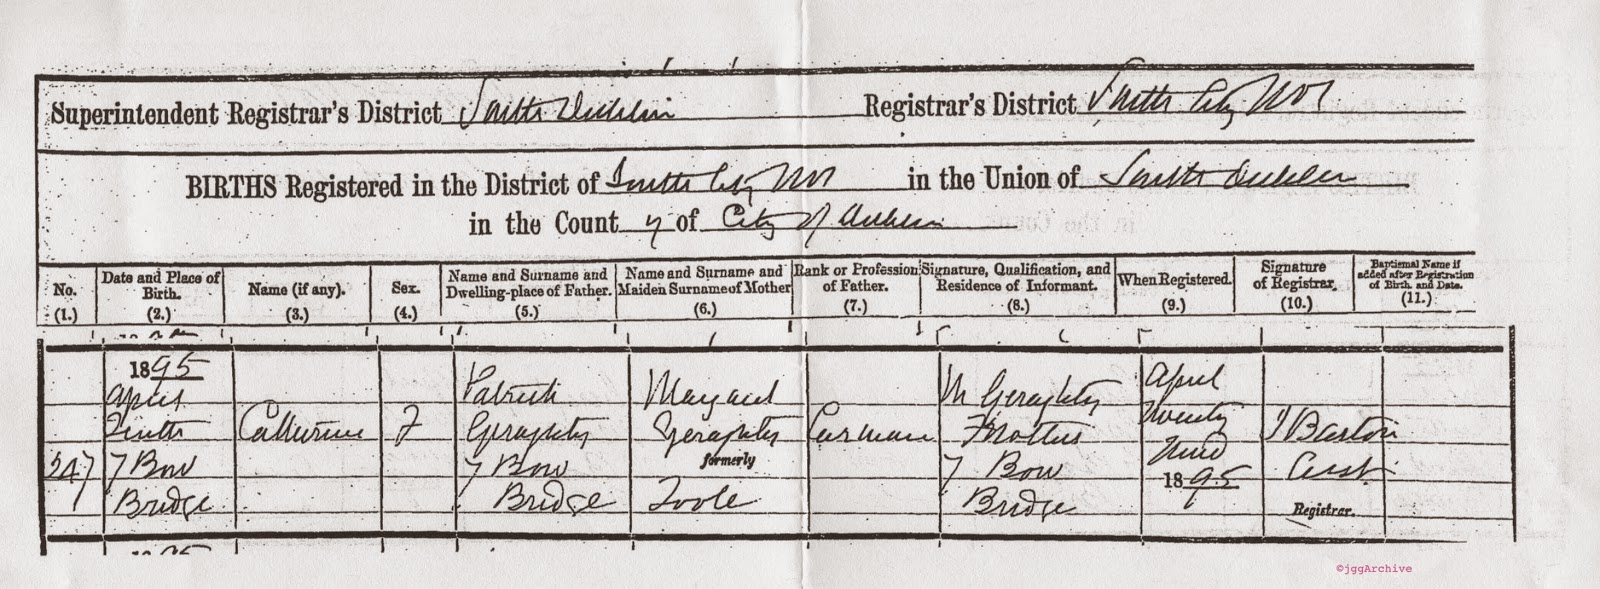 Superintendent Registrar's District South Dublin Registrar's District South City No 1
BIRTHS Registered in the District of South City No 1 in the Union of South Dublin
in the County of City of Dublin
No. (1.)
Date and Place of Birth. (2.)
Name (if any). (3.)
Sex. (4.)
Name and Surname and Dwelling-place of Father. (5.)
Name and Surname and Maiden Surname of Mother (6.)
Rank or Profession of Father. (7.)
Signature, Qualification, and Residence of Informant. (8.)
When Registered. (9.)
Signature of Registrar. (10.)
Baptismal Name if added after Registration of Birth, and Date. (11.)
247
1895
April
Tenth
7 Bow
Bridge
Catherine
F
Patrick
Geraghty
7 Bow
Bridge
Margaret
Geraghty
formerly
Toole
Carman
M Geraghty
Mother
7 Bow
Bridge
April
Twenty
Third
1895
Barton
Asst
Registrar.
©jggArchive